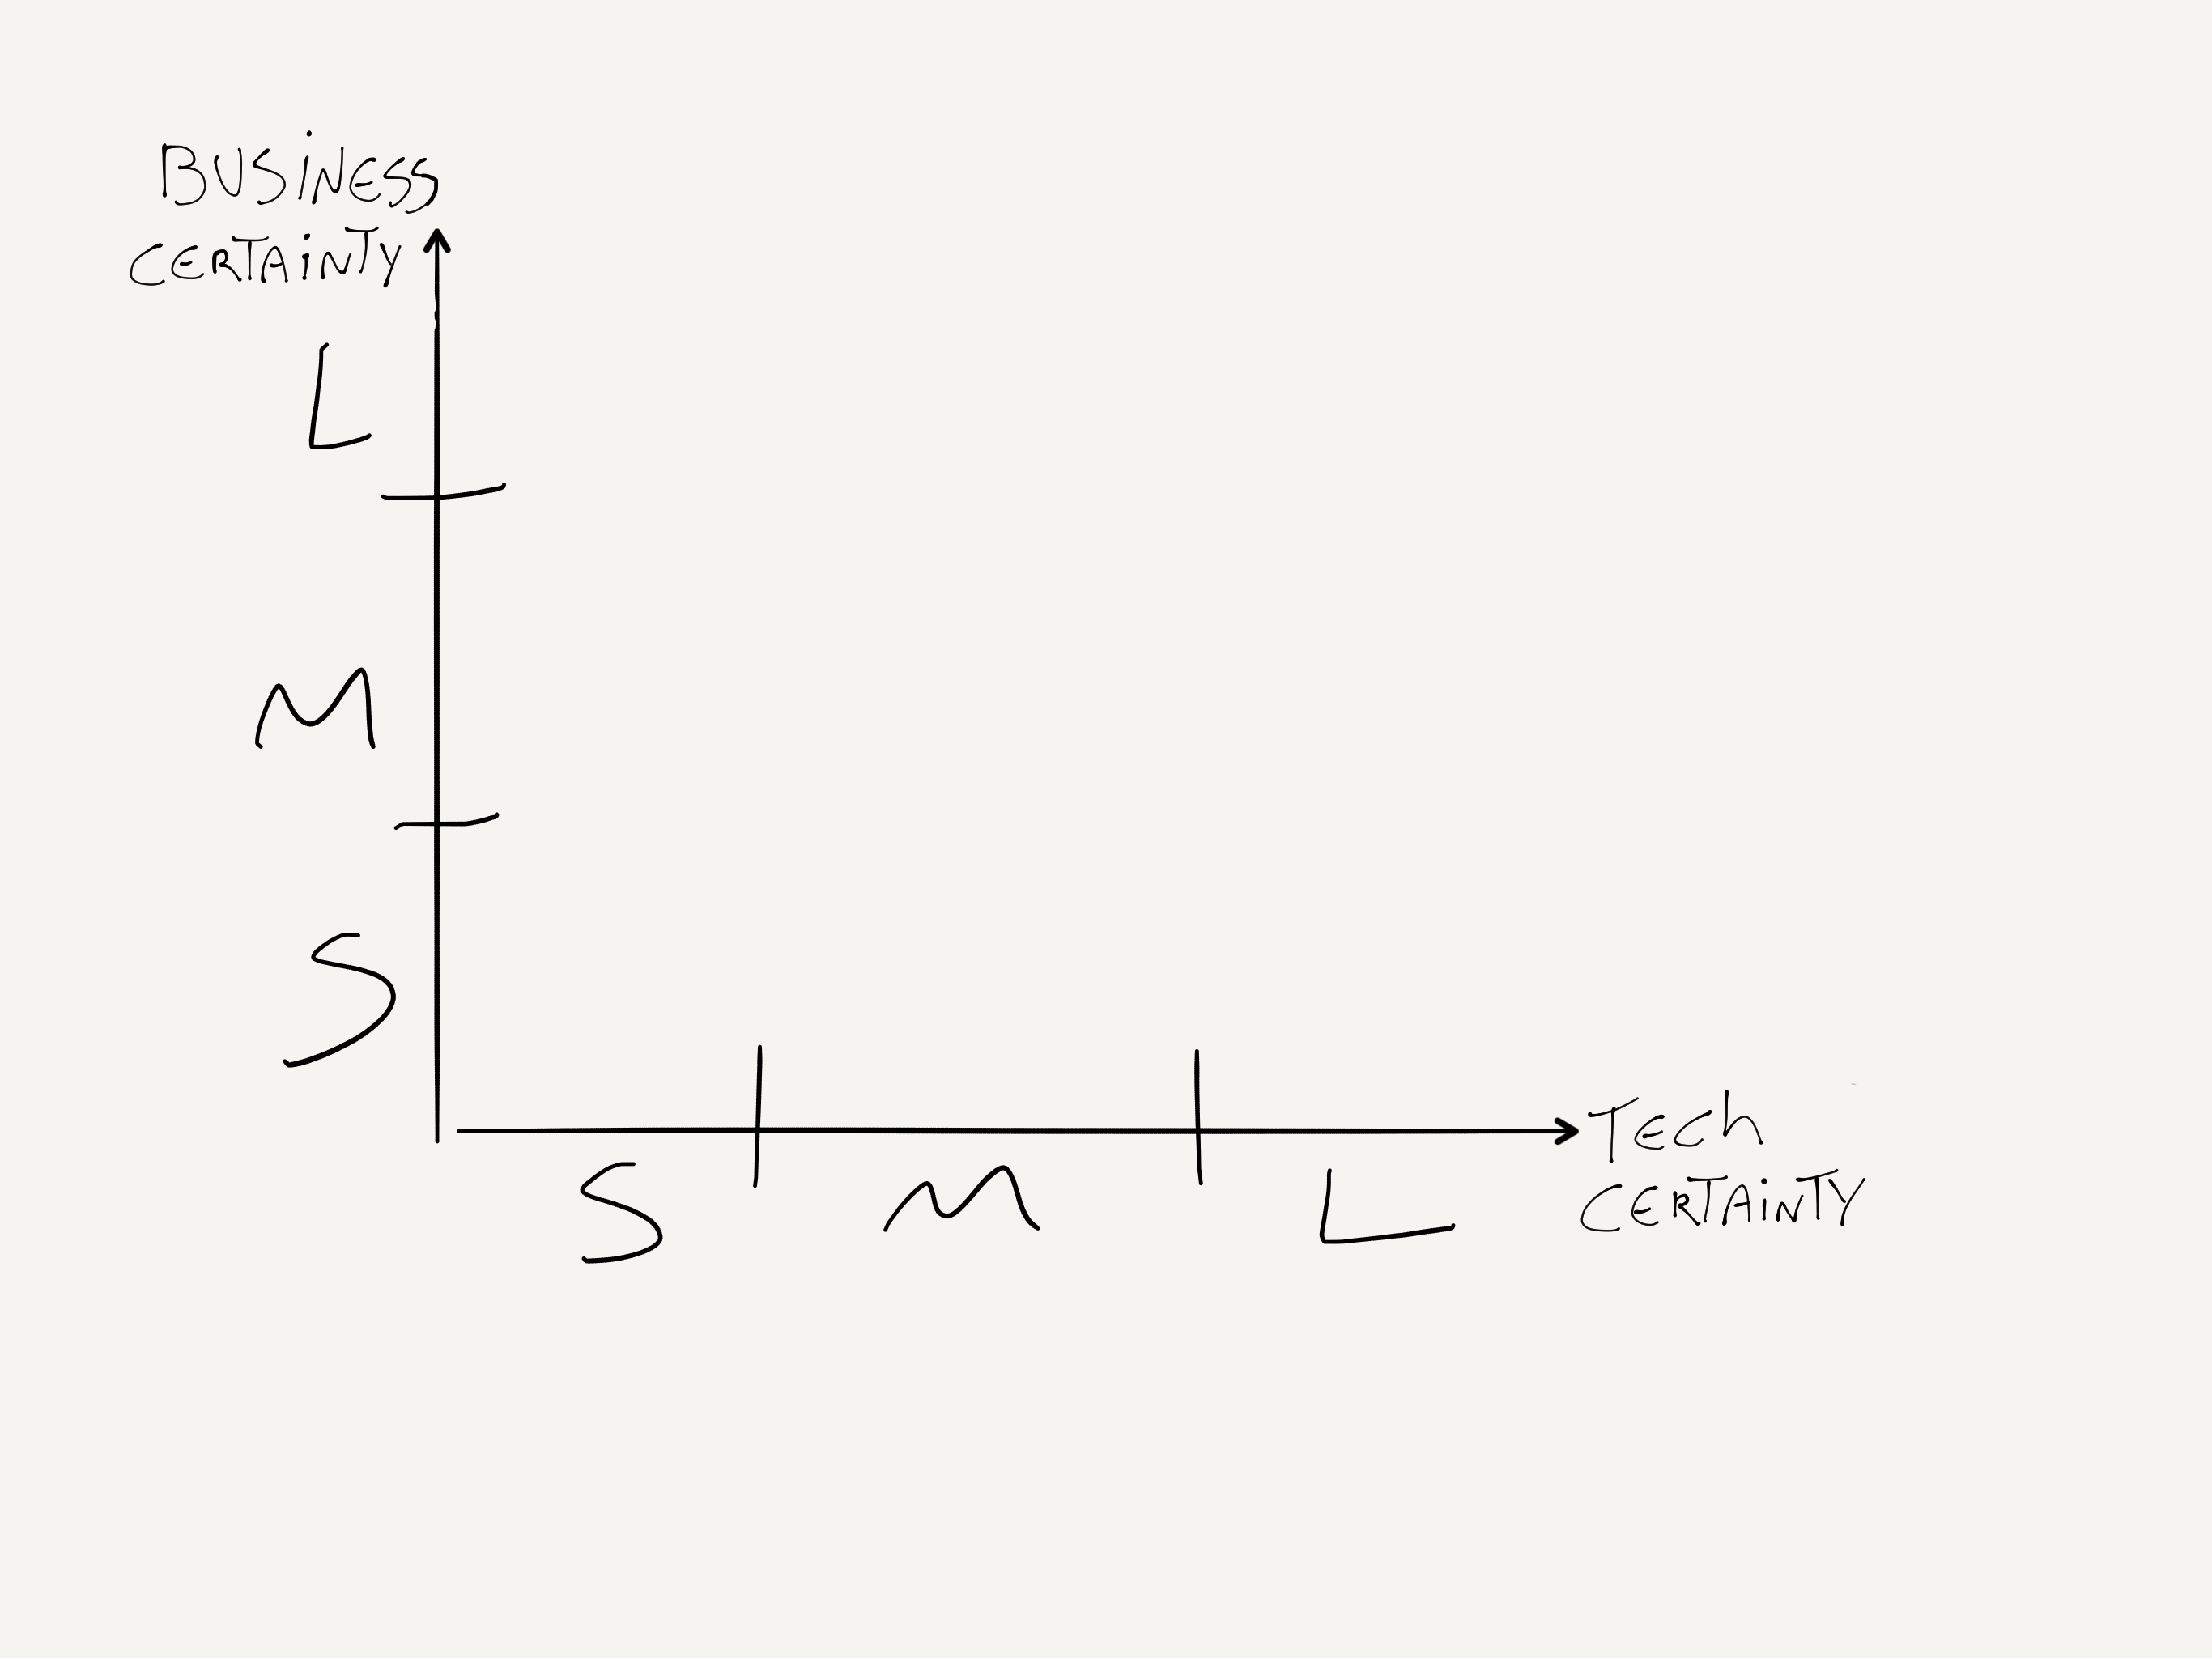 BUSiNESS
CERTAiNTY
L
M
S
TECh
CERTAiNTY
S M L